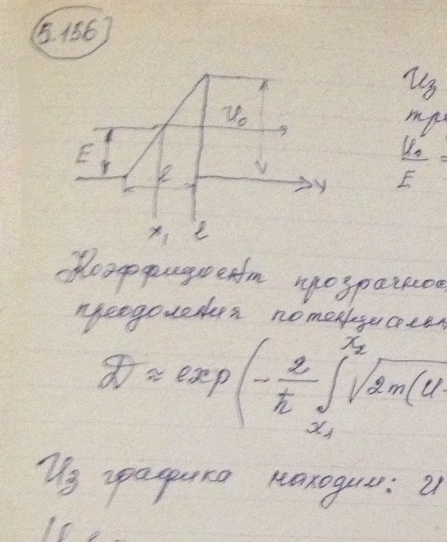 5.156
Из
U₀
тре
E
l
U₀/E =
x
x₁ l
Коэффициент прозрачнос
преодоления потенциальн
D ≈ exp(-2/ħ ∫ₓ₁ˣ² √2m(U-
Из графика находим: U